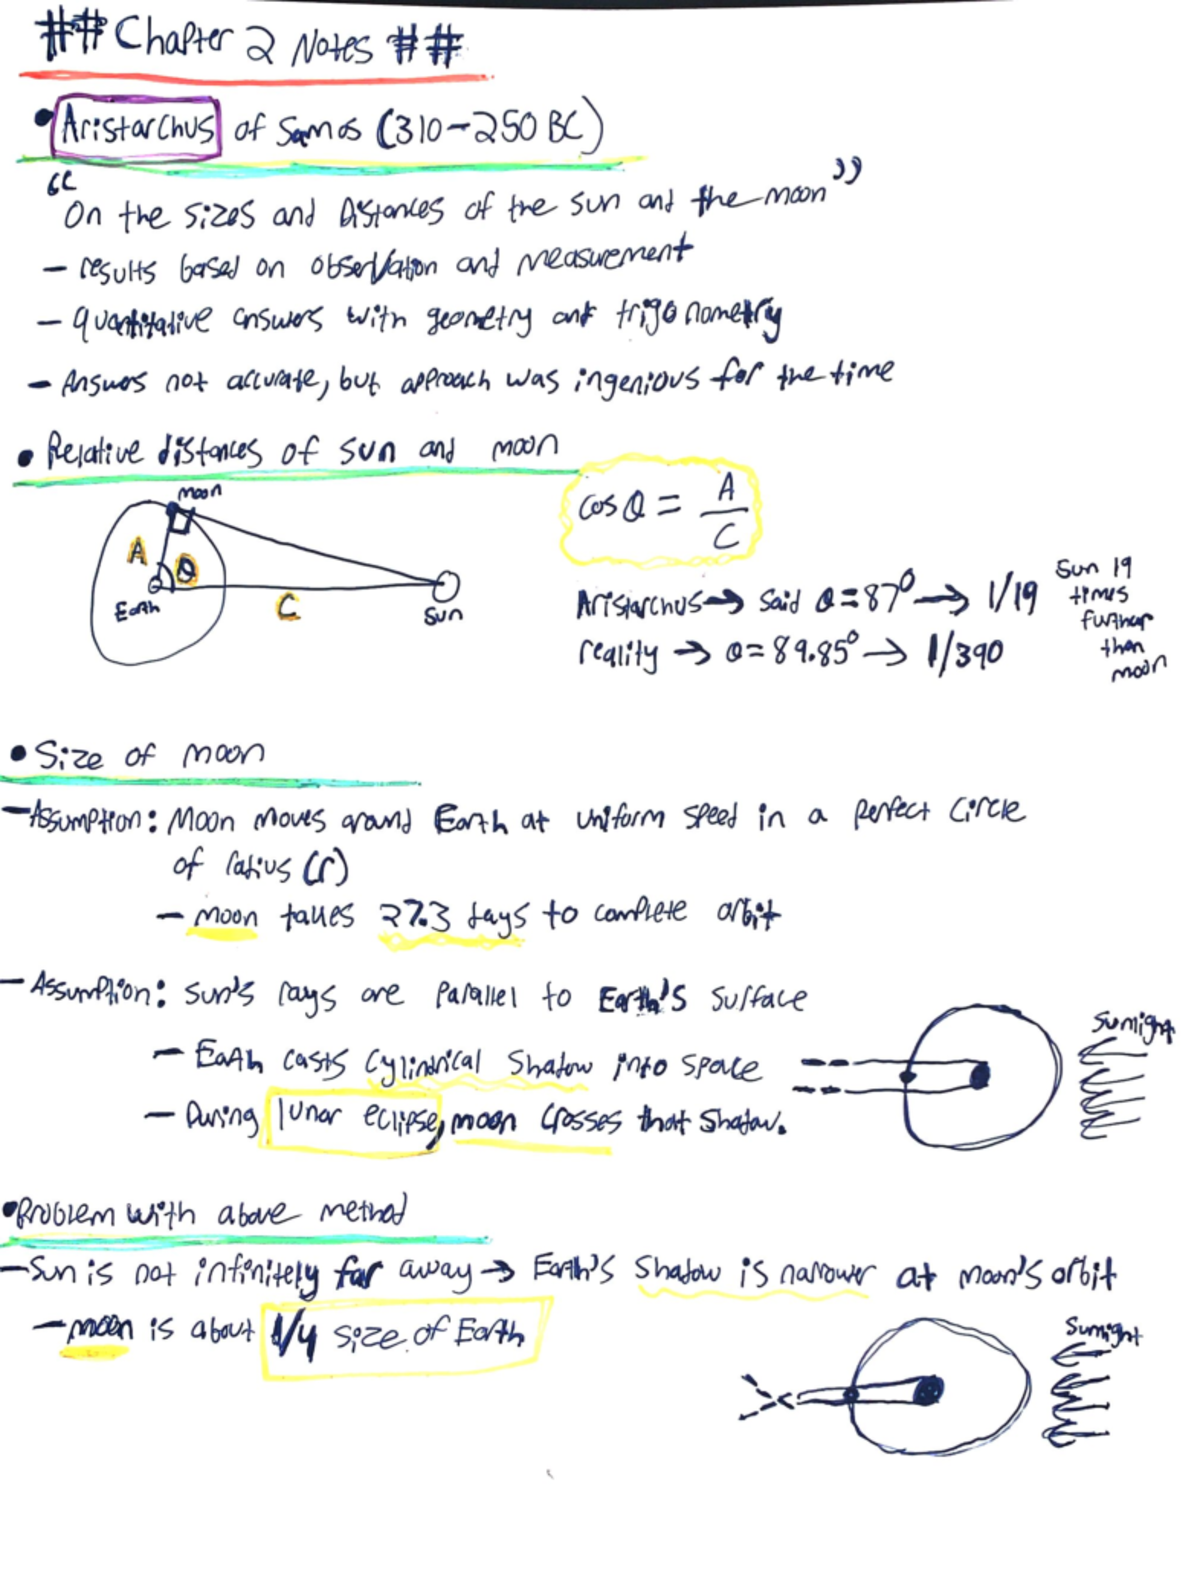 ## Chapter 2 Notes ##
• Aristarchus of Samos (310-250 BC)
"On the sizes and Distances of the sun and the moon"
- results based on observation and measurement
- quantitative answers with geometry and trigonometry
- Answers not accurate, but approach was ingenious for the time
• Relative distances of sun and moon
Moon
A
θ
Earth
C
Sun
cos θ = A/C
Aristarchus → said θ = 87° → 1/19
Sun 19
times
further
than
moon
reality → θ = 89.85° → 1/390
• Size of moon
- Assumption: Moon moves around Earth at uniform speed in a perfect circle
of radius (r)
- moon takes 27.3 days to complete orbit
- Assumption: sun's rays are parallel to Earth's surface
- Earth casts cylindrical shadow into space
- During lunar eclipse, moon crosses that shadow.
Sunlight
• Problem with above method
- Sun is not infinitely far away → Earth's shadow is narrower at moon's orbit
- moon is about 1/4 size of Earth
Sunlight